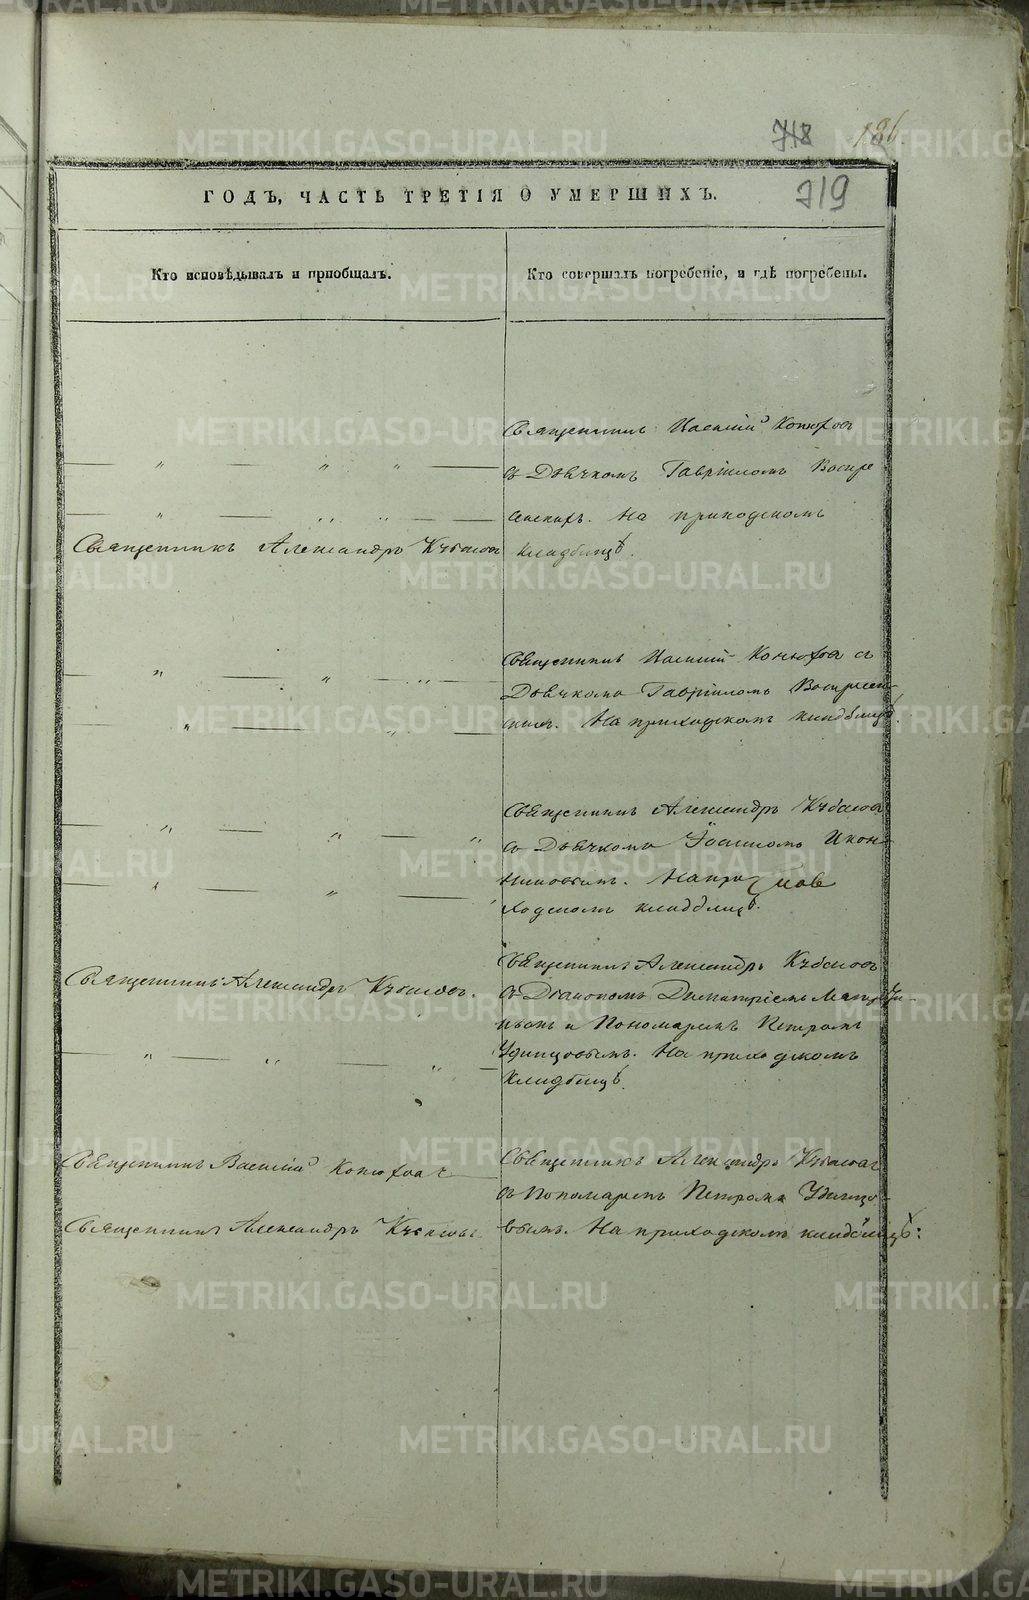 718 186
719
ГОДЪ, ЧАСТЬ ТРЕТІЯ О УМЕРШИХЪ.
Кто исповѣдывалъ и пріобщалъ.
Кто совершалъ погребеніе, и гдѣ погребены.
Священникъ Василій Конюхов
съ Дьячкомъ Гавріиломъ Воскре
сенскимъ. На приходскомъ
Священникъ Александръ Кубасов
кладбищѣ.
Священникъ Василий Конюхов съ
Дьячкомъ Гавріиломъ Воскресен-
скимъ. На приходскомъ кладбищѣ.
Священникъ Александръ Кубасов
съ Дьячкомъ Іоанномъ Икон-
никовымъ. На при
ходскомъ кладбищѣ.
Священникъ Александръ Кубасовъ.
Священникъ Александръ Кубасовъ
съ Діакономъ Димитріемъ
и Пономаремъ Петромъ
Удинцовымъ. На приходскомъ
Кладбищѣ.
Священникъ Василій Конюхов
Священникъ Александръ Кубасов
Священникъ Александръ Кубасов
съ Пономаремъ Петромъ Удинцо-
вымъ. На приходскомъ кладбищѣ:
METRIKI.GASO-URAL.RU